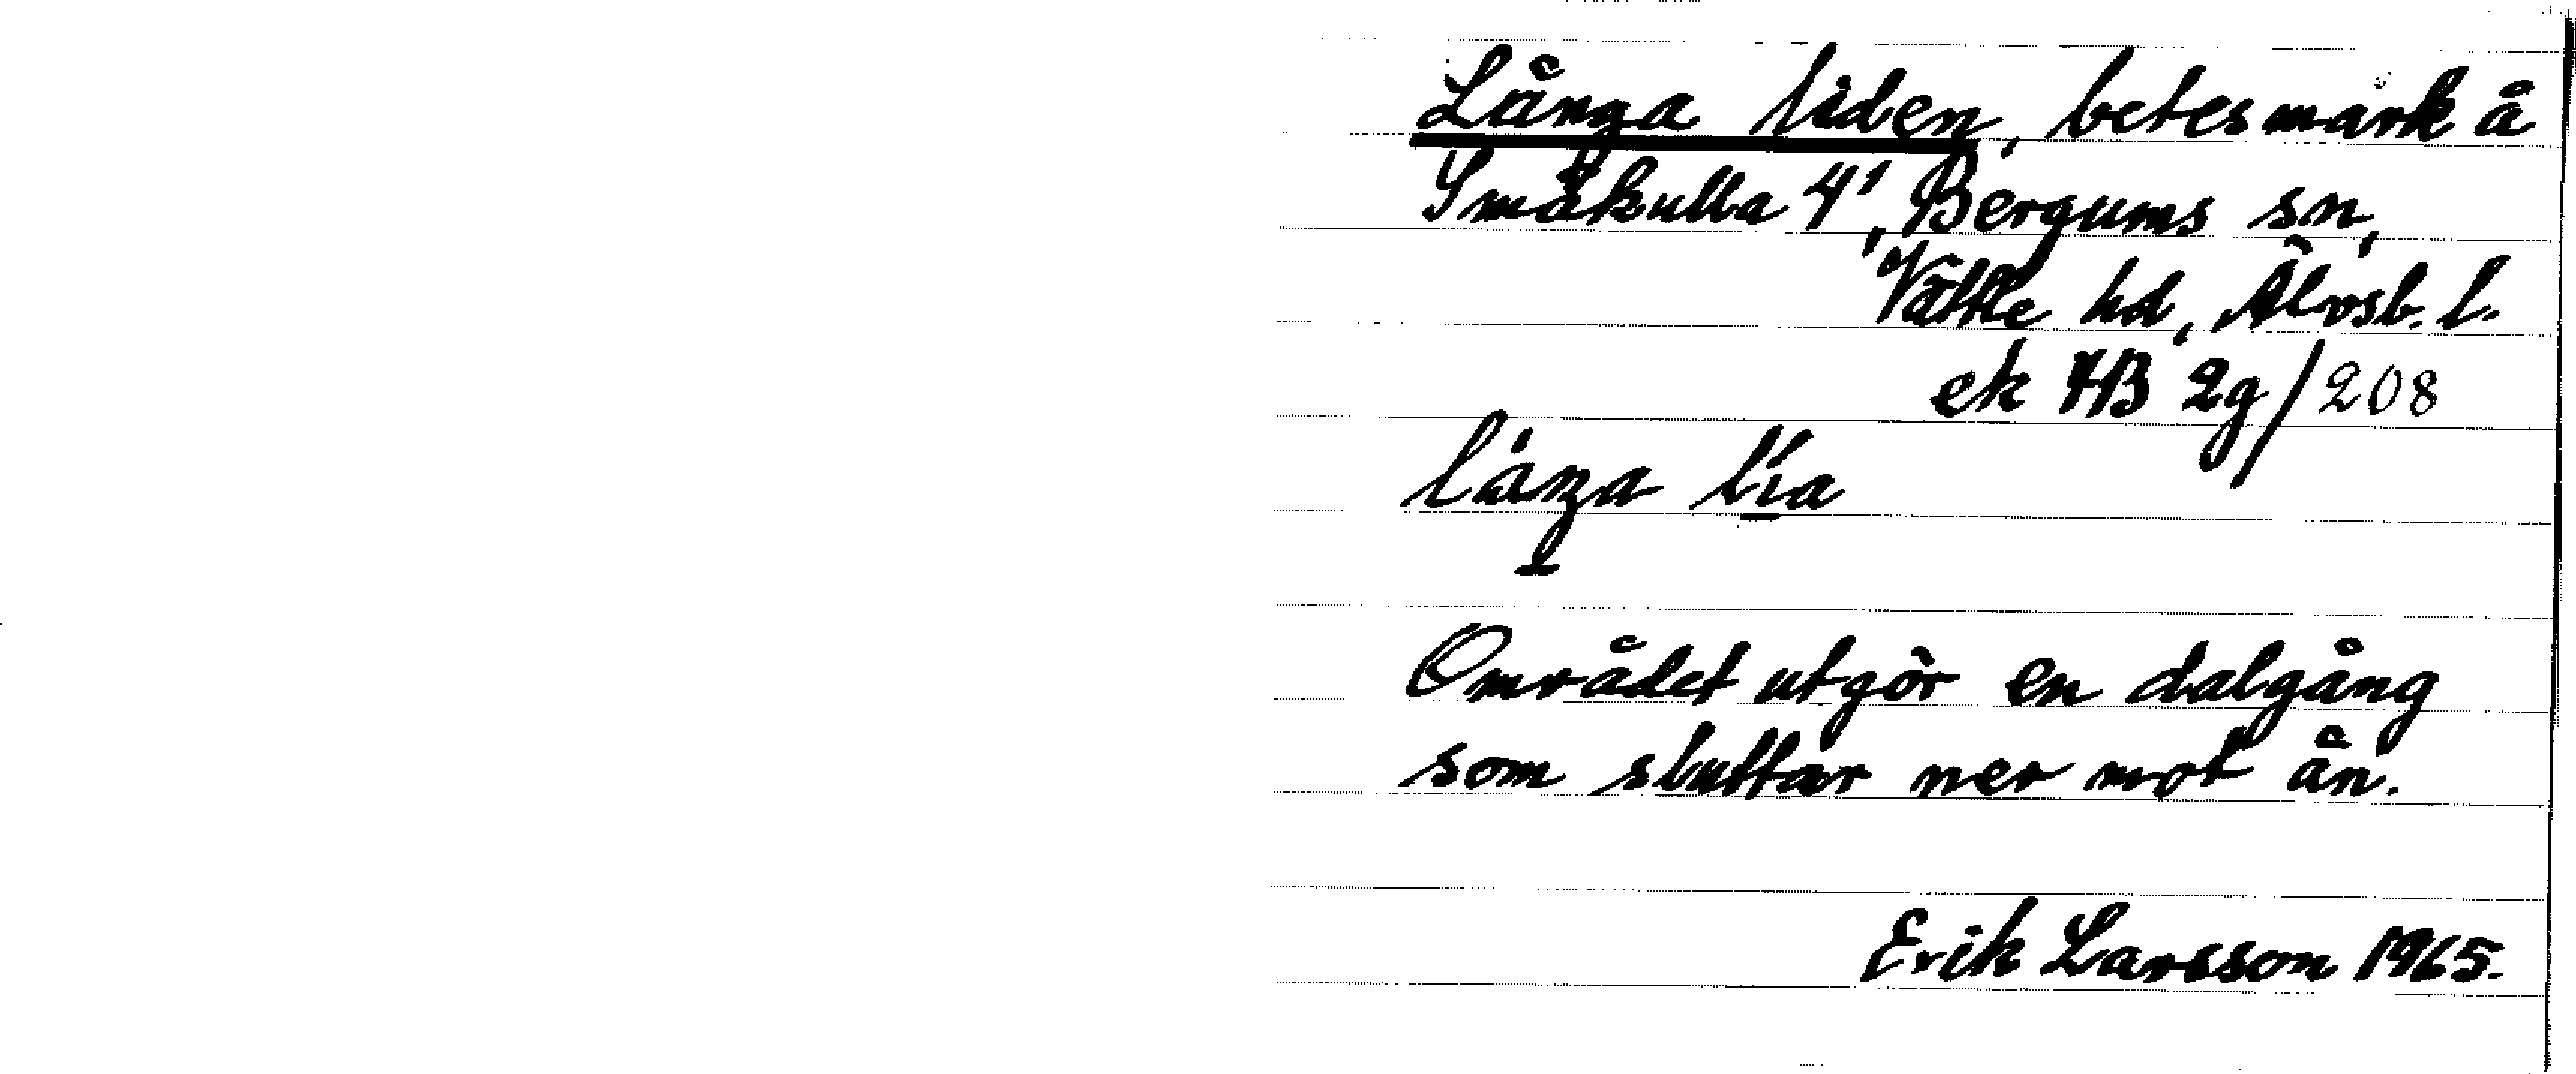 Långa liden, betesmark å
Småkulla 4¹, Bergums sn,
Vättle hd, Älvsb. l.
ek 7B 2g/208
låŋa lía
Området utgör en dalgång
som sluttar ner mot ån.
Erik Larsson 1965.